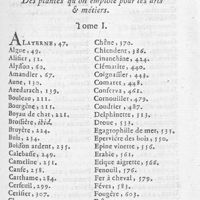 Des plantes qu'on emploie pour les arts
& métiers.
Tome I.
ALATERNE; 47.
Algue, 49.
Alisier, 52.
Alysson, 60.
Amandier, 67.
Aune, 110.
Azedarach, 139.
Bouleau, 211.
Bourgène, 214.
Boyau de chat, 218.
Brosière, ibid.
Bruyère, 224.
Buis, 224.
Buisson ardent, 235.
Calebasse, 249.
Cameline, 251.
Canse, 258.
Carthame, 284.
Cerfeuil, 299.
Cerisier, 307.
Chêne, 370.
Chiendent, 386.
Cinanthème, 424.
Clématite, 440.
Coignassier, 448.
Comaret, 448.
Conserva, 461.
Cornouiller, 469.
Coudrier, 487.
Delphinette, 513.
Drouë, 533.
Egagrophile de mer, 535.
Epervière des bois, 550.
Epine vinette, 556.
Erable, 561.
Erique aigrette, 566.
Fenouil, 576.
Fer à cheval, 579.
Féves, 583.
Fougère, 603.